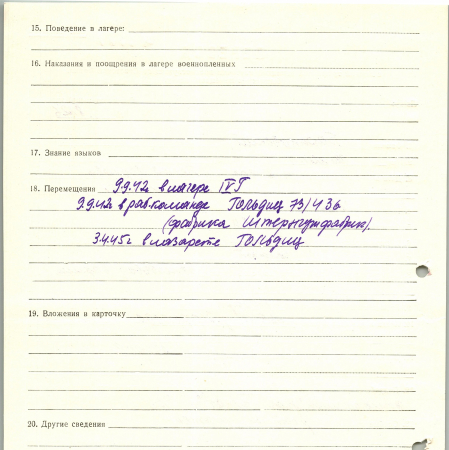 15. Поведение в лагере:
16. Наказания и поощрения в лагере военнопленных
17. Знание языков
18. Перемещения 9.9.42г в лагере IVГ
9.9.42 в раб.команде Гольдиц 73/436
(фабрика Штернгутфабрик).
3.4.45г в лазарете Гольдиц
19. Вложения в карточку
20. Другие сведения